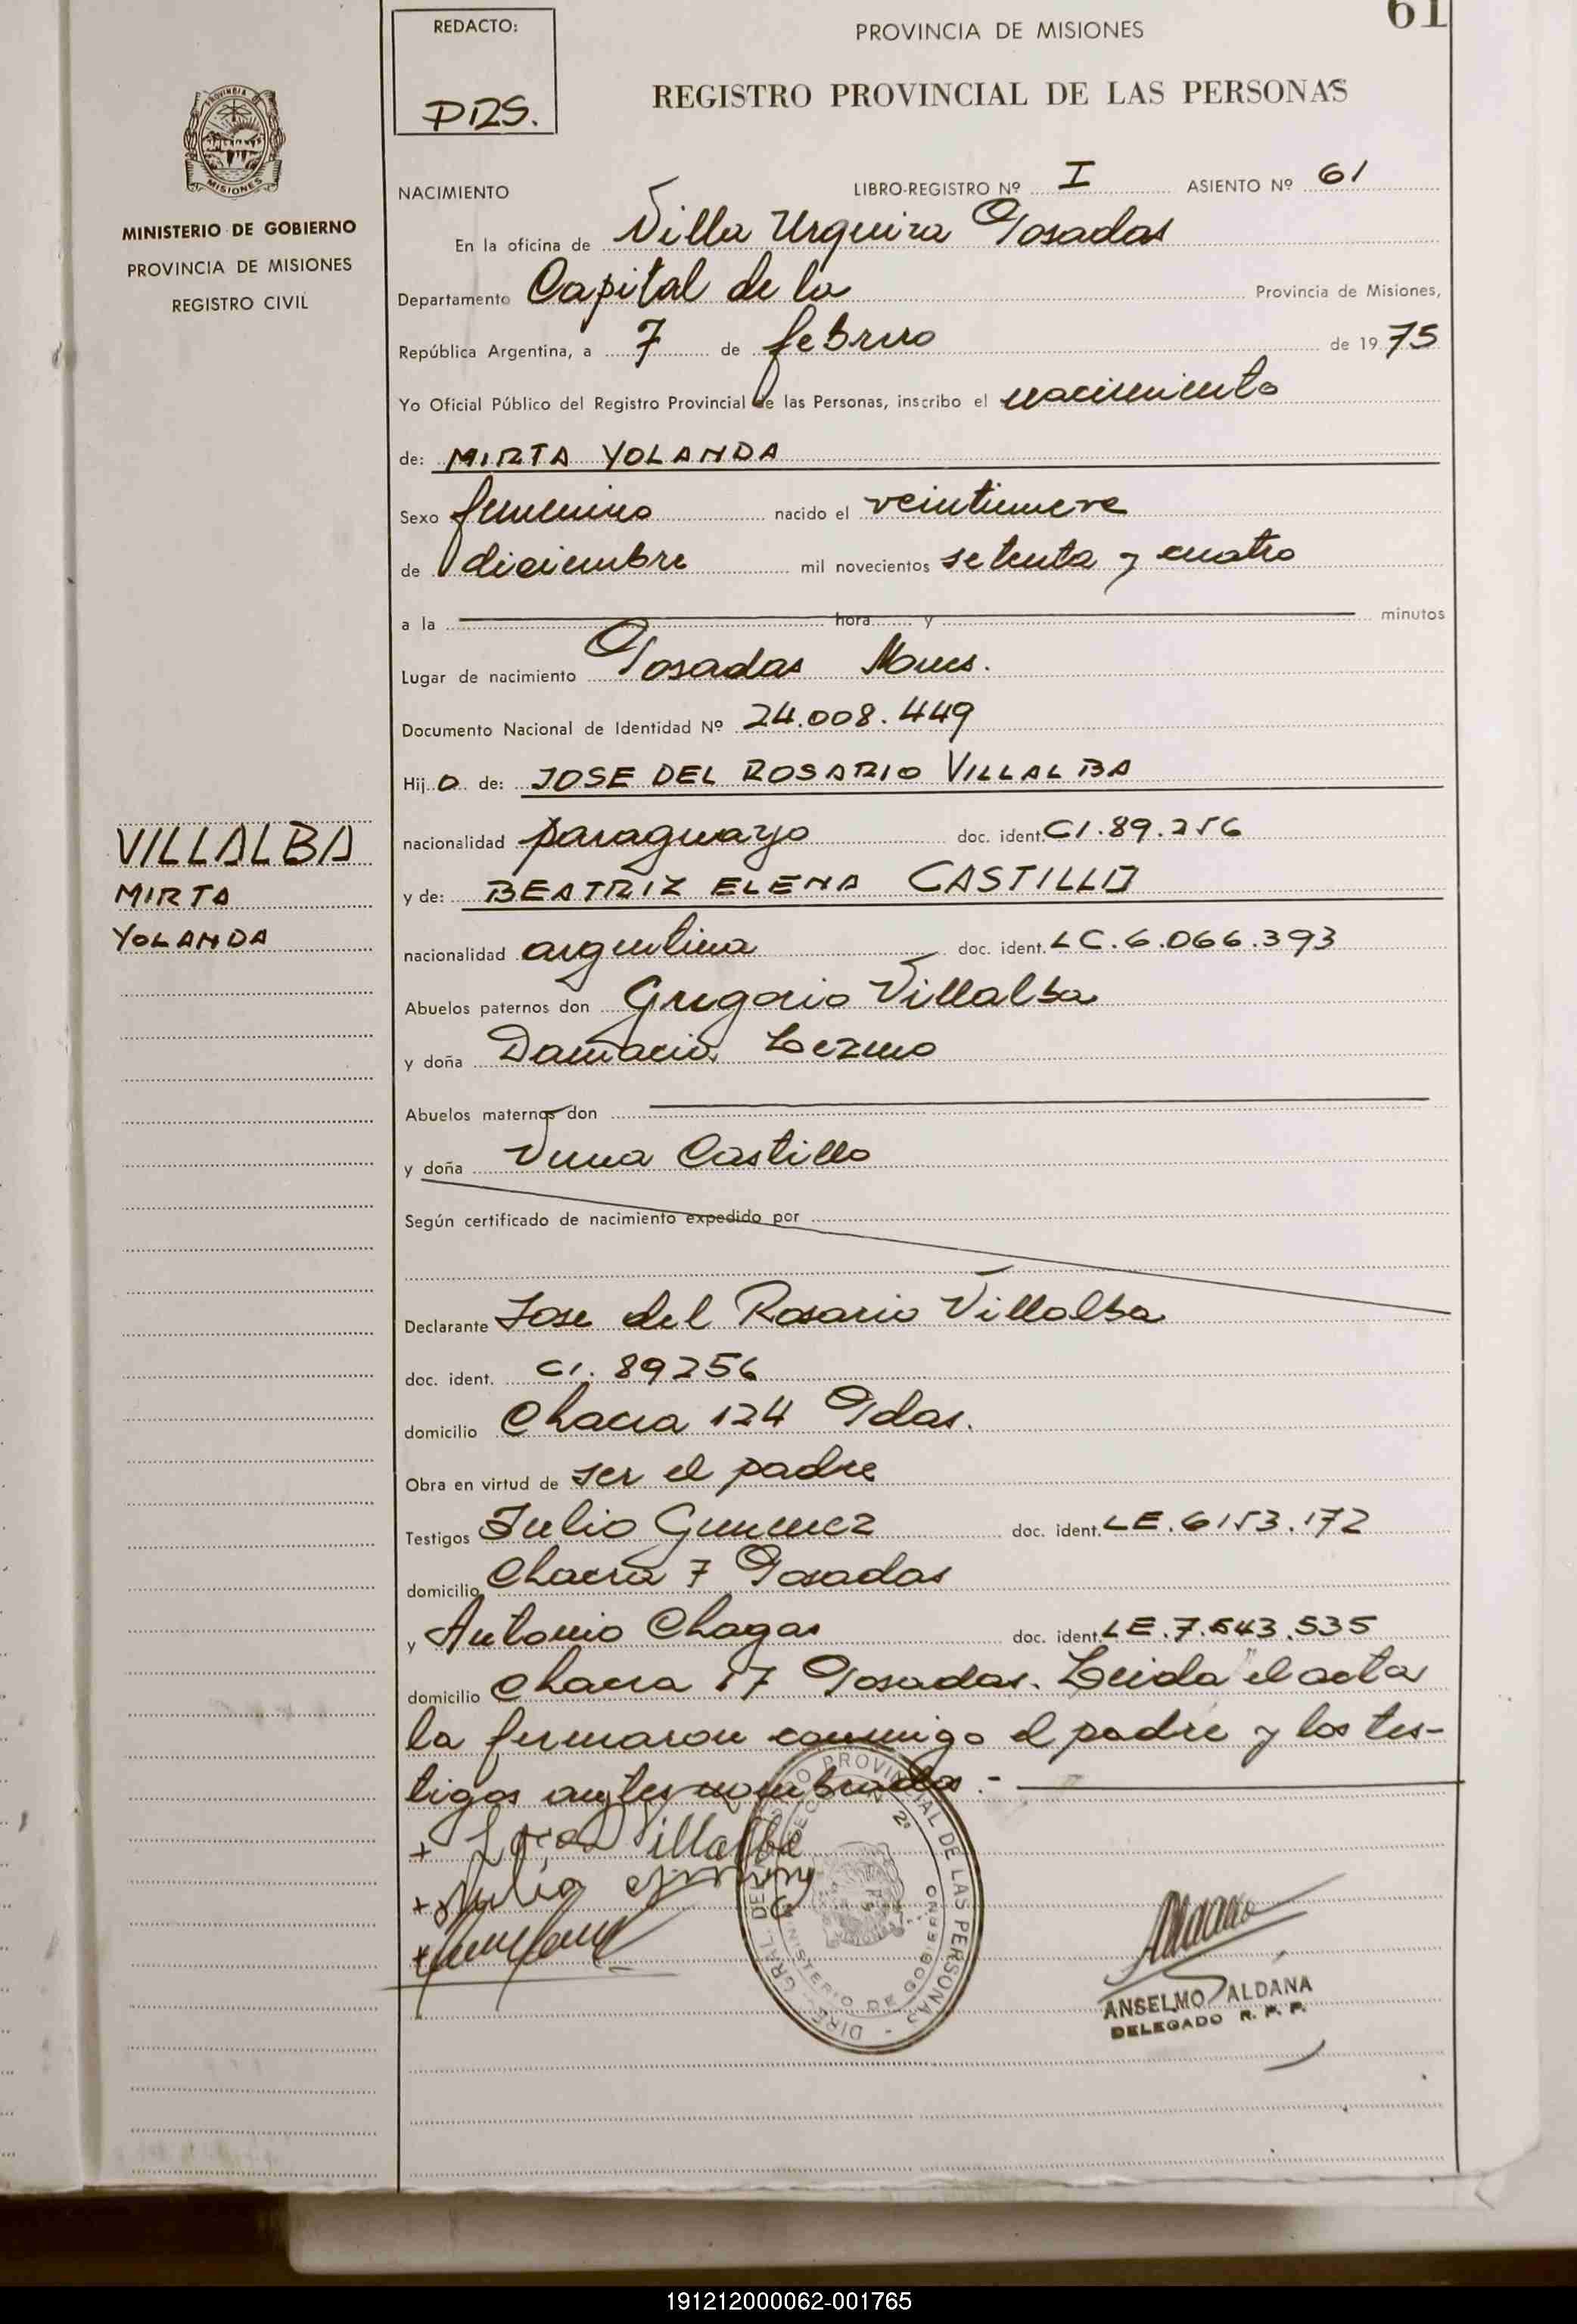 61
REDACTO:
PROVINCIA DE MISIONES
REGISTRO PROVINCIAL DE LAS PERSONAS
PROVINCIA DE
MISIONES
MINISTERIO DE GOBIERNO
PROVINCIA DE MISIONES
REGISTRO CIVIL
NACIMIENTO LIBRO-REGISTRO Nº I ASIENTO Nº 61
En la oficina de Villa Urquiza Posadas
Departamento Capital de la Provincia de Misiones,
República Argentina, a 7 de febrero de 1975
Yo Oficial Público del Registro Provincial de las Personas, inscribo el nacimiento
de: MIRTA YOLANDA
Sexo femenino nacido el veintinueve
de diciembre mil novecientos setenta y cuatro
a la hora y minutos
Lugar de nacimiento Posadas Mnes.
Documento Nacional de Identidad Nº 24.008.449
Hija de: JOSE DEL ROSARIO VILLALBA
nacionalidad paraguayo doc. ident. CI.89.256
y de: BEATRIZ ELENA CASTILLO
nacionalidad argentina doc. ident. LC.6.066.393
Abuelos paternos don Gregorio Villalba
y doña Lezmo
Abuelos maternos don
y doña Castillo
Según certificado de nacimiento expedido por
Declarante Jose del Rosario Villalba
doc. ident. CI. 89256
domicilio Chacra 124 Pdas.
Obra en virtud de ser el padre
Testigos Julio Gimenez doc. ident. LE.6153.172
domicilio Chacra 7 Posadas
y Antonio Chagas doc. ident. LE.7.543.535
domicilio Chacra 17 Posadas. Leida el acta
la firmaron conmigo el padre y los tes-
tigos antes nombrados.-
VILLALBA
MIRTA
YOLANDA
+ Villalba
+ Julio
DIREC. GRAL. DEL REGISTRO PROVINCIAL DE LAS PERSONAS
MINISTERIO DE GOBIERNO
ANSELMO ALDANA
DELEGADO R. P. P.
191212000062-001765